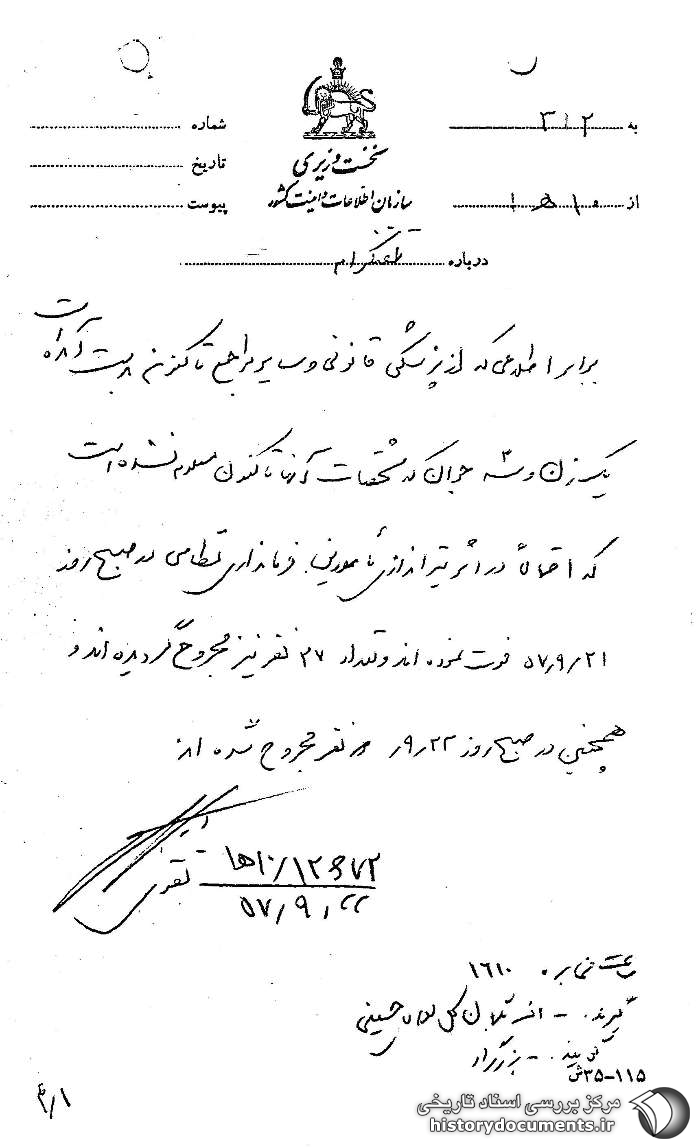 به ۳۱۲
از ۱۰ ه ۱
شماره
تاریخ
پیوست
نخست وزیری
سازمان اطلاعات و امنیت کشور
درباره تلفنگرام
برابر اطلاعی که از پزشکی قانونی و سایر مراجع تا کنون بدست آمده است
یک زن و سه جوان که مشخصات آنها تا کنون معلوم نشده است
که احتمالاً در اثر تیراندازی مأمورین فرمانداری نظامی در صبح روز
۵۷٫۹٫۲۱ فوت نموده اند و تعداد ۳۷ نفر نیز مجروح گردیده اند و
همچنین در صبح روز ۹٫۲۲ نفر مجروح شده اند
تقوی
۵۷٫۹٫۲۲
ساعت مخابره ۱۶۱۰
گیرنده - حسینی
گوینده -
۱۱۵-۳۵ش
۴/۱
مرکز بررسی اسناد تاریخی
historydocuments.ir